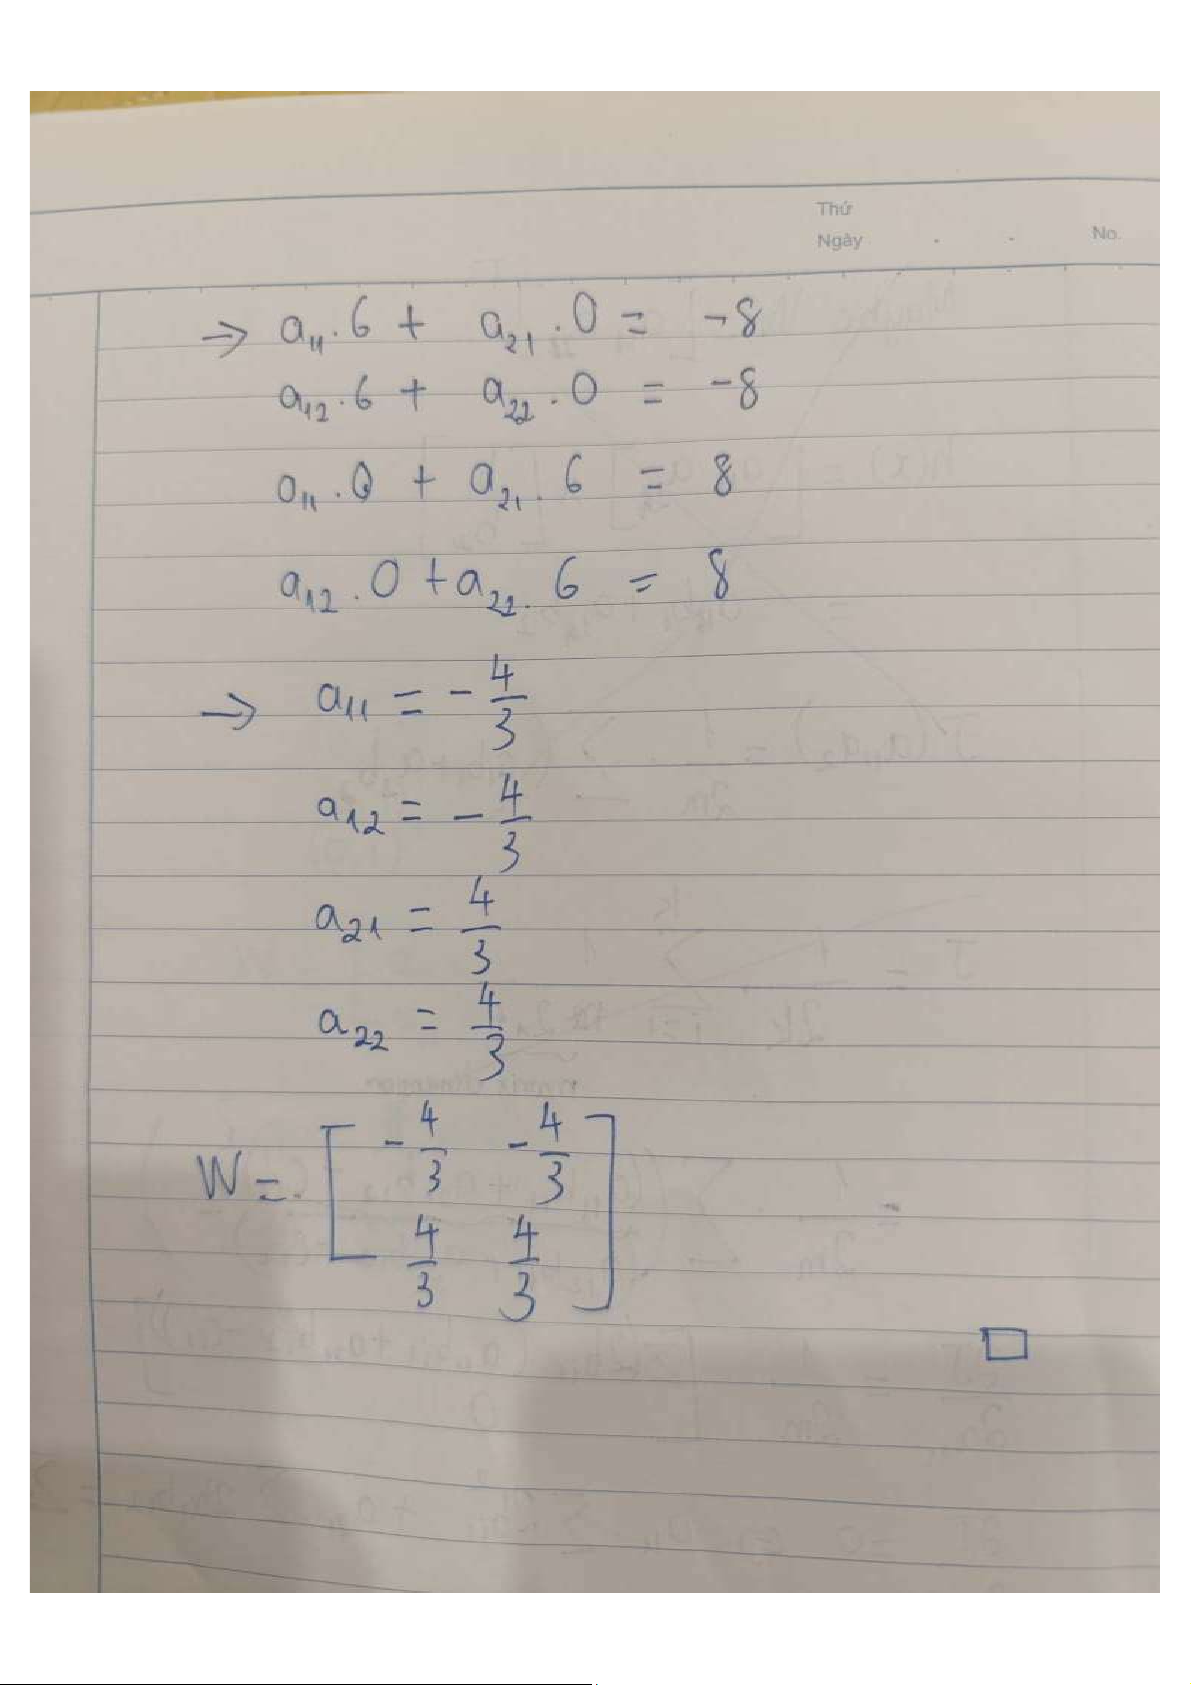 Thứ
Ngày . . No.
→ a₁₁.6 + a₂₁.0 = -8
a₁₂.6 + a₂₂.0 = -8
a₁₁.0 + a₂₁.6 = 8
a₁₂.0 + a₂₂.6 = 8
→ a₁₁ = -4/3
a₁₂ = -4/3
a₂₁ = 4/3
a₂₂ = 4/3
W = [ -4/3 -4/3
4/3 4/3 ]
□